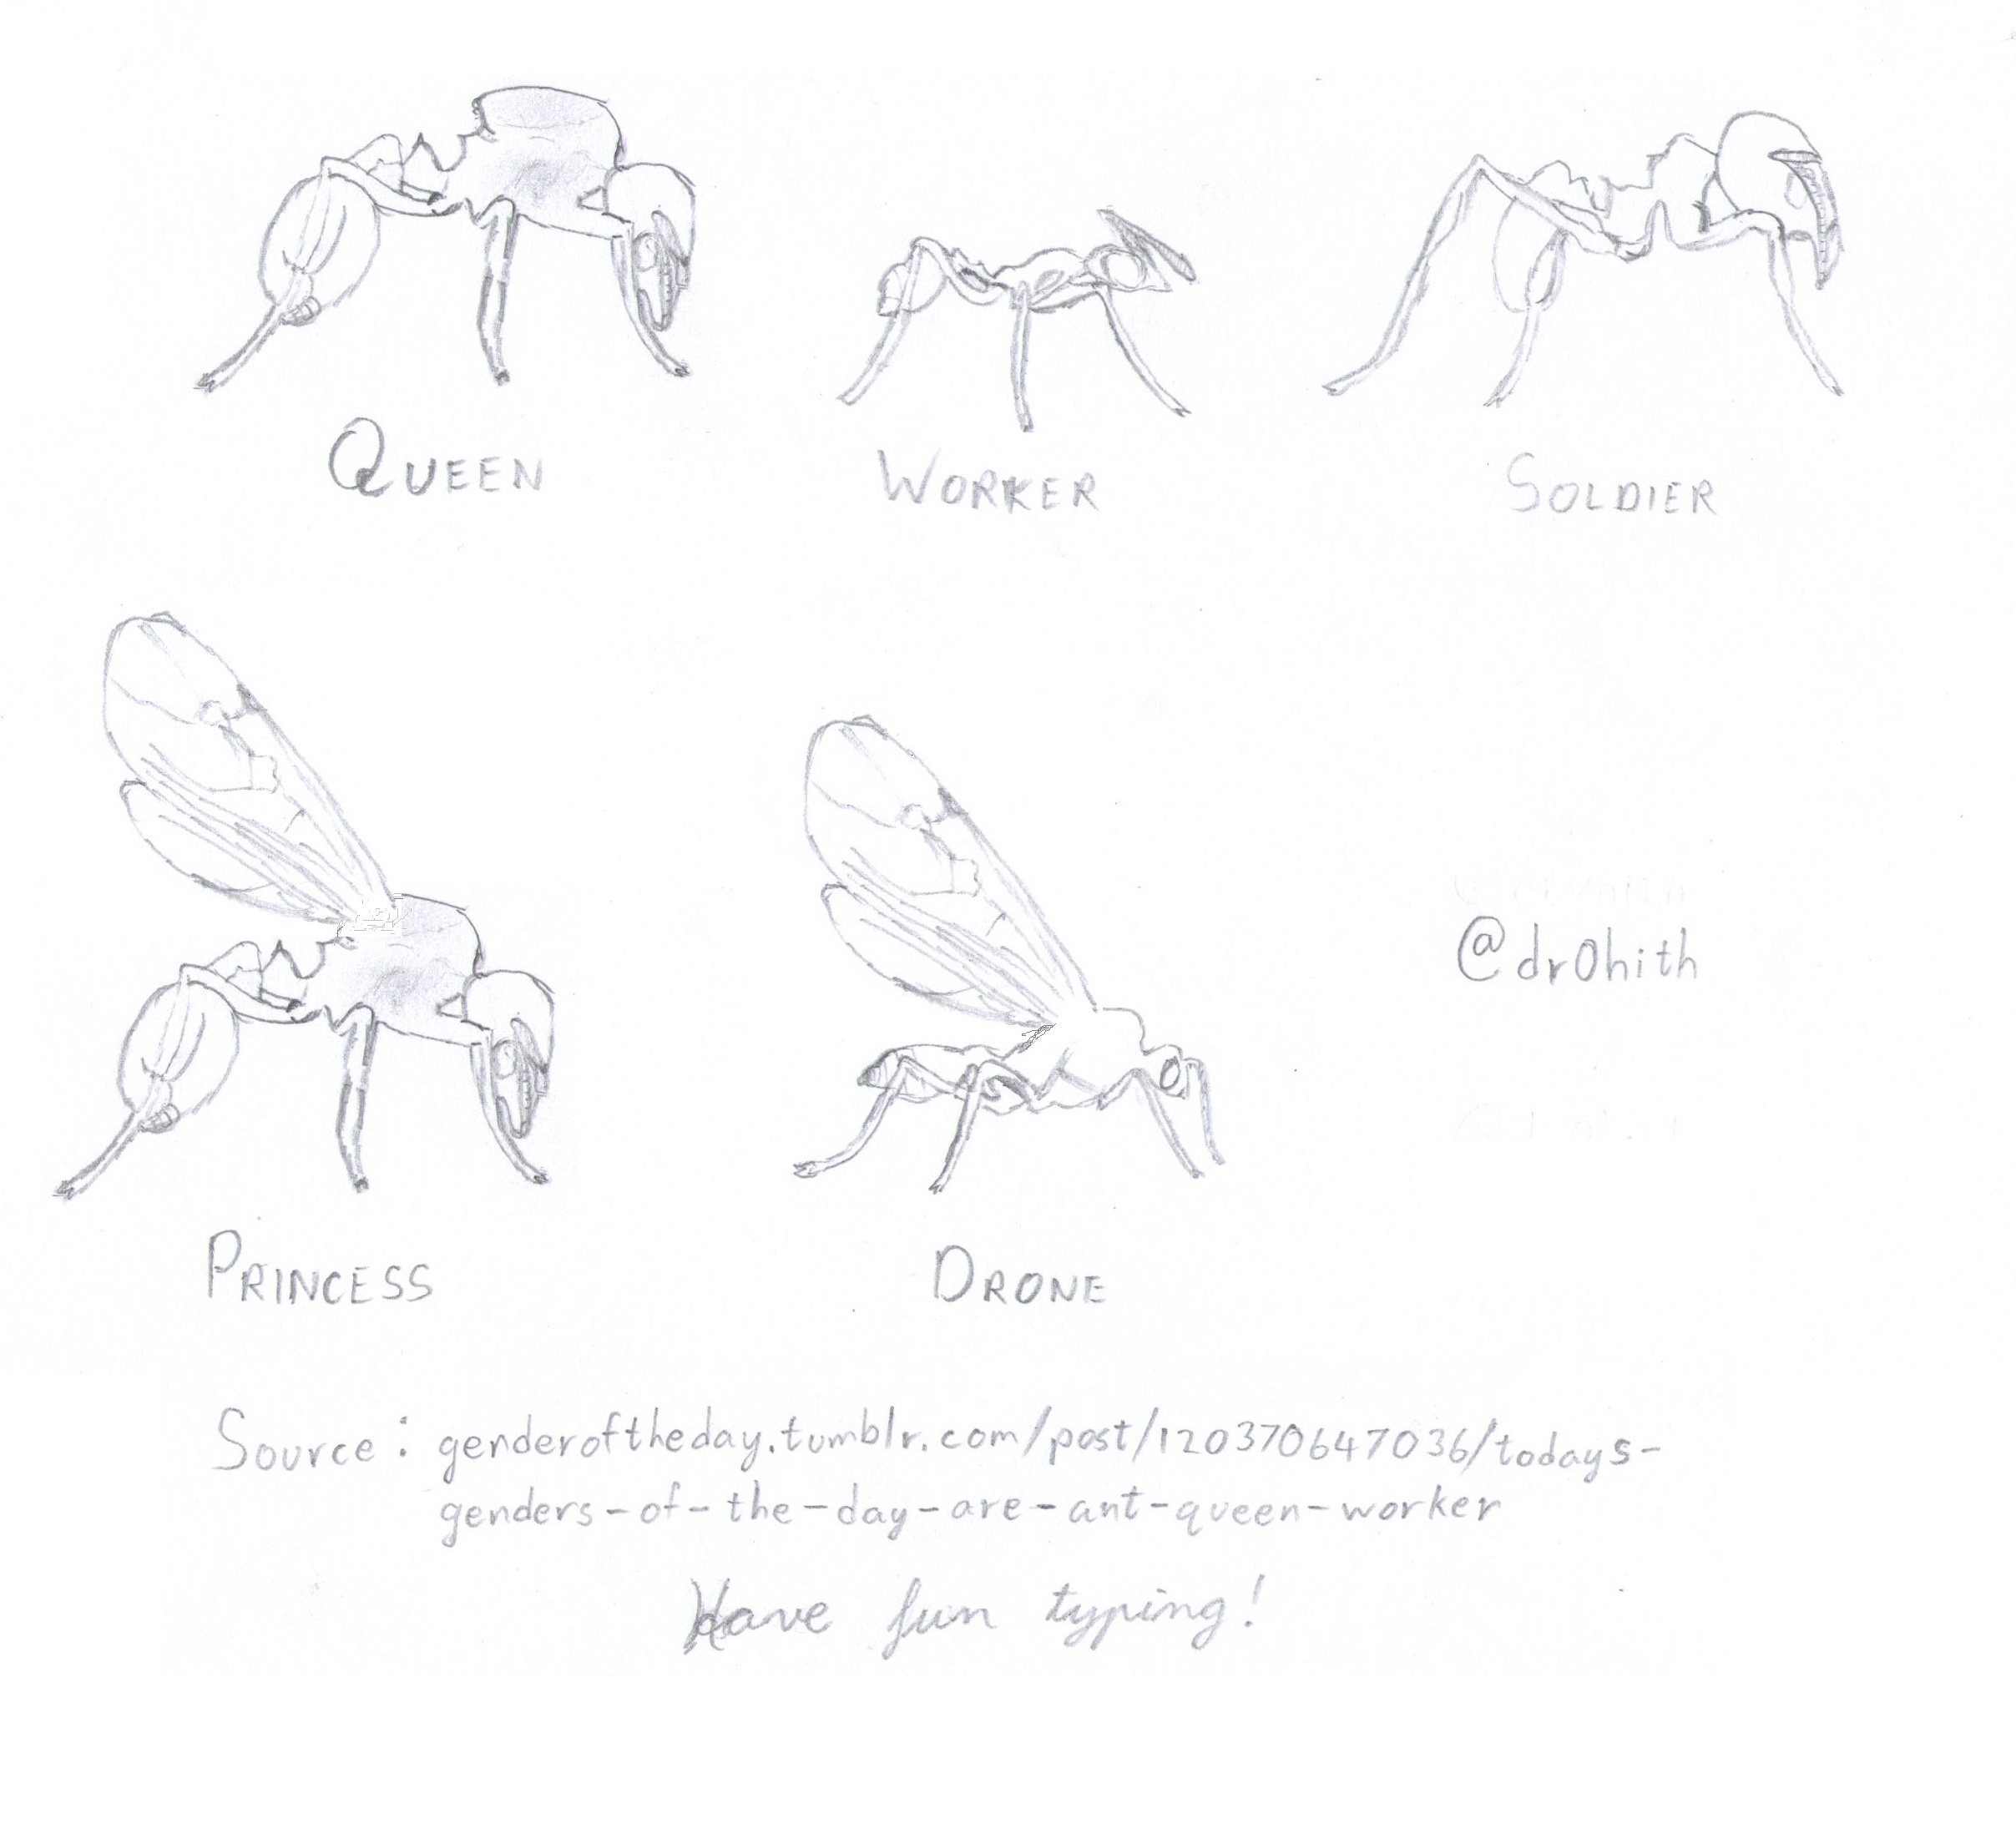 QUEEN
WORKER
SOLDIER
@dr0hith
PRINCESS
DRONE
Source: genderoftheday.tumblr.com/post/120370647036/todays-
genders-of-the-day-are-ant-queen-worker
Have fun typing!